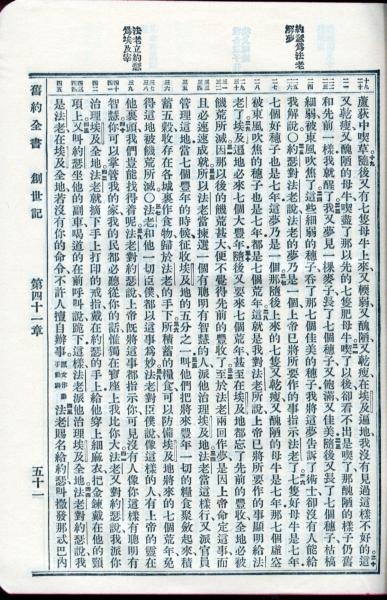 約瑟為法老
解夢
法老立約瑟
為埃及宰
蘆荻中喫草隨後又有七隻母牛上來又輭弱又醜陋又乾瘦在埃及遍地我沒有見過這樣不好的這
又乾瘦又醜陋的母牛喫盡了那以先的七隻肥母牛喫了以後卻看不出是喫了那醜陋的樣子仍舊
和先前一樣我就醒了我又夢見一棵麥子長了七個穗子又飽滿又佳美隨後又長了七個穗子枯槁
細弱被東風吹焦了這些細弱的穗子吞了那七個佳美的穗子我將這夢告訴了術士卻沒有人能給
我解說○約瑟對法老說法老的夢乃是一個上帝已將所要作的事指示法老了七隻好母牛是七年
七個好穗子也是七年這夢乃是一個那隨後上來的七隻又乾瘦又醜陋的母牛是七年那七個虛空
被東風吹焦的穗子也是七年都是七個荒年這就是我對法老所說上帝已將所要作的事顯明給法
老了埃及遍地必來七個大豐年隨後又要來七個荒年甚至在埃及地都忘了先前的豐收全地必被
饑荒所滅因那以後的饑荒甚大便不覺得先前的豐收了至於法老兩回作夢是因上帝命定這事而
且必速速成就所以法老當揀選一個有聰明有智慧的人派他治理埃及地法老當這樣行又派官員
管理這地當七個豐年的時候征收埃及地的五分之一叫他們把將來豐年一切的糧食聚斂起來積
蓄五穀收存在各城裏作食物歸於法老的手下所積蓄的糧食可以防備埃及地將來的七個荒年免
得這地被饑荒所滅○法老和他一切臣僕都以這事為妙法老對臣僕說像這樣的人有上帝的靈在
他裏頭我們豈能找得着呢法老對約瑟說上帝既將這事都指示你可見沒有人像你這樣有聰明有
智慧你可以掌管我的家我的民都必聽從你的話惟獨在寶座上我比你大法老又對約瑟說我派你
治理埃及全地法老就摘下手上打印的戒指戴在約瑟的手上給他穿上細麻衣把金鍊戴在他的頸
項上又叫約瑟坐他的副車喝道的在前呼叫說跪下這樣法老派他治理埃及全地法老對約瑟說我
是法老在埃及全地若沒有你的命令不許人擅自辦事原文作動手動腳法老賜名給約瑟叫撒發那忒巴內
舊約全書 創世記 第四十一章 五十一